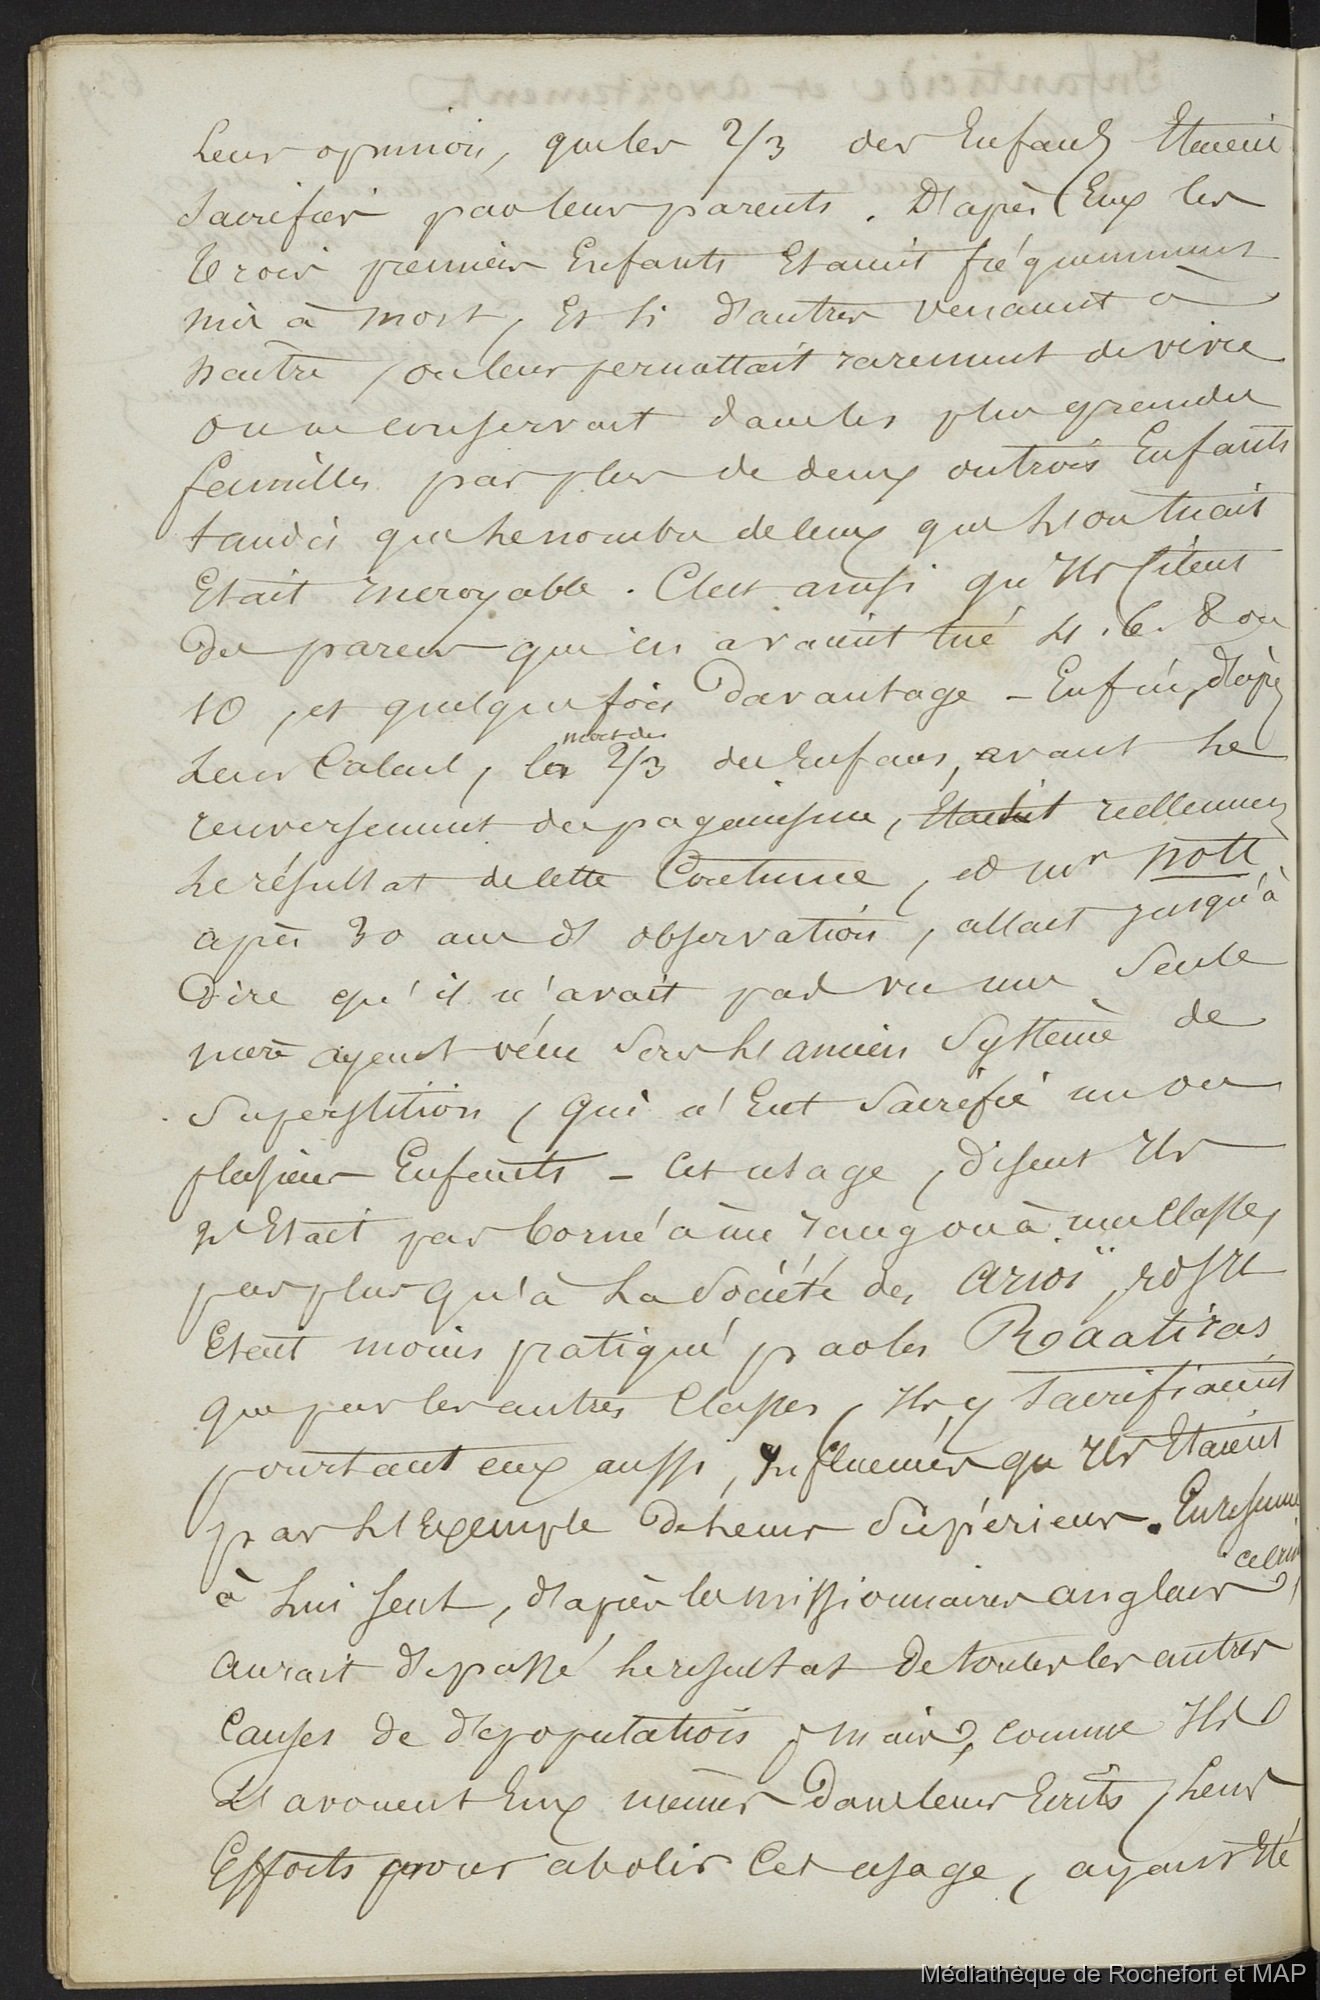 Leur opinion, que les 2/3 des Enfants Etaient
Sacrifiés par leurs parents. D'après Eux les
trois premiers Enfants Etaient fréquemment
mis à mort, Et si d'autres venaient à
naître, on leur permettait rarement de vivre
on ne conservait dans les plus grandes
familles pas plus de deux ou trois Enfants
tandis que le nombre de ceux que l'on tuait
Etait incroyable. C'est ainsi qu'ils Citent
des parens qui en avaient tué 4. 6. 8 ou
10, et quelques fois Davantage - Enfin, d'après
mort des
Leur Calcul, la 2/3 des Enfans, avant le
renversement du paganisme, Etait reellement
le résultat de cette Coutume, et Mr nott
après 30 ans d'observation, allait jusqu'à
Dire qu'il n'avait pas vu une Seule
mère ayant vécu Sous l'ancien Système de
Superstition, qui n'Eut Sacrifié un ou
plusieurs Enfants - Cet usage, disent ils
n'Etait pas borné à un rang ou à une Classe,
pas plus qu'à la Société des arioï, et s'il
Etait moins pratiqué par les Raatiras
que par les autres Classes, ils y Sacrifiaient
pourtant eux aussi, influencés qu'ils Etaient
par l'Exemple de leurs Supérieurs. En resumé
celui
à lui seul, d'après les missionnaires anglais,
aurait dépassé le resultat de toutes les autres
Causes de dépopulation, mais, comme ils
L'avouent Eux mêmes Dans leurs Ecrits, leurs
Efforts pour abolir Cet usage, ayant Eté
Médiathèque de Rochefort et MAP